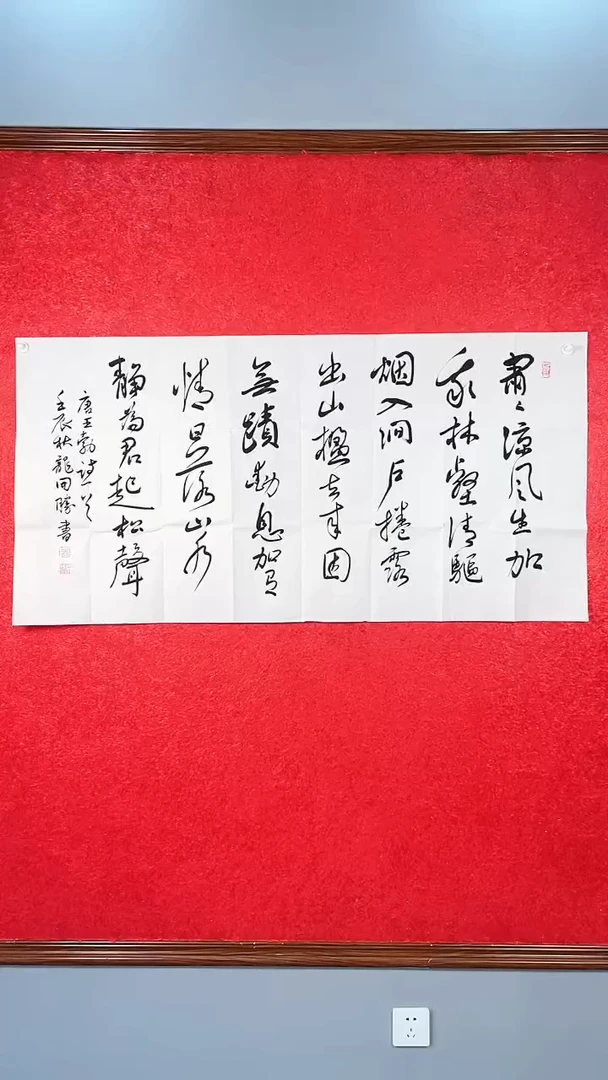 肅々涼风生加
我林壑清驅
烟入涧户捲露
出山楹去来固
無蹟動息如有
情日落山水
静為君起松聲
唐王勃詩一首
壬辰秋龍田勝書